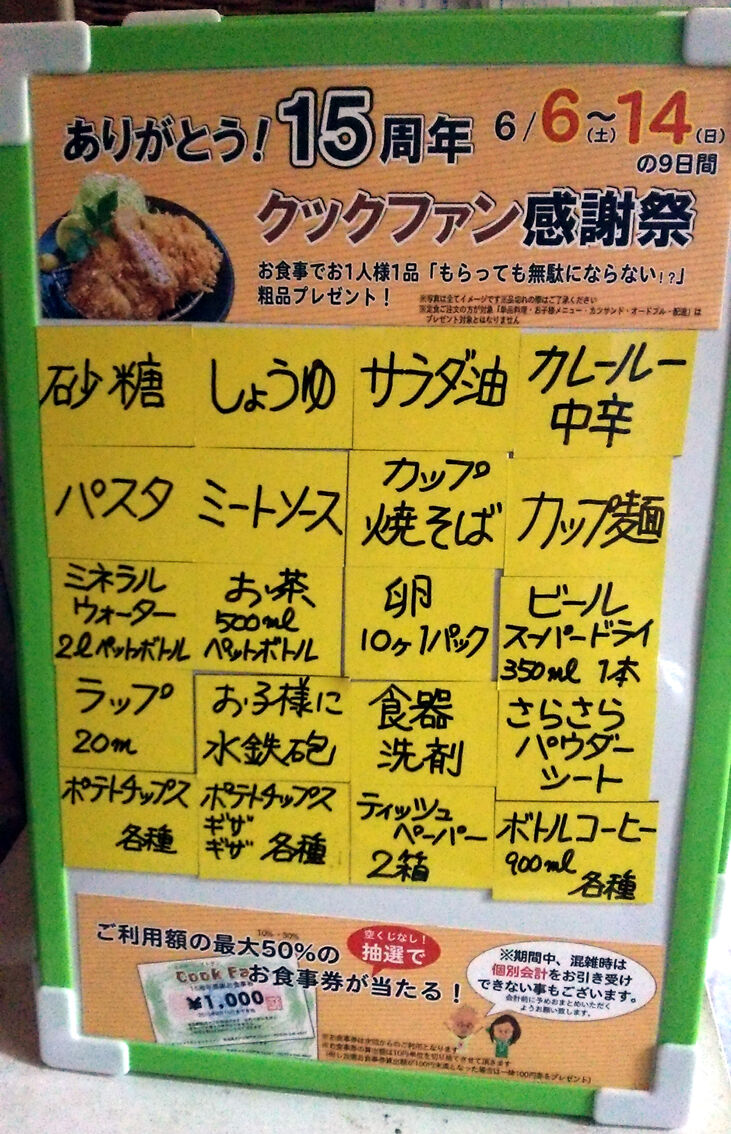 ありがとう！15周年 6/6(土)〜14(日)
の9日間
クックファン感謝祭
お食事でお1人様1品「もらっても無駄にならない！？」
粗品プレゼント！
※写真は全てイメージです※品切れの際はご了承ください
※定食ご注文の方が対象「単品料理・お子様メニュー・カツサンド・オードブル・配達」は
プレゼント対象とはなりません
砂糖
しょうゆ
サラダ油
カレールー
中辛
パスタ
ミートソース
カップ
焼そば
カップ麺
ミネラル
ウォーター
2lペットボトル
お茶
500ml
ペットボトル
卵
10ヶ1パック
ビール
スーパードライ
350ml 1本
ラップ
20m
お子様に
水鉄砲
食器
洗剤
さらさら
パウダー
シート
ポテトチップス
各種
ポテトチップス
ギザ
ギザ 各種
ティッシュ
ペーパー
2箱
ボトルコーヒー
900ml
各種
ご利用額の最大50%の
10%・30%
空くじなし！
抽選で
お食事券が当たる！
Cook Fa
¥1,000
※期間中、混雑時は
個別会計をお引き受け
できない事もございます。
会計前に予めおまとめいただく
ようお願い致します。
※お食事券は次回からのご利用となります
※お食事券の算出額は10円単位を切り捨てさせて頂きます
(但しお食事券算出額が100円未満となった場合は一律100円券をプレゼント)